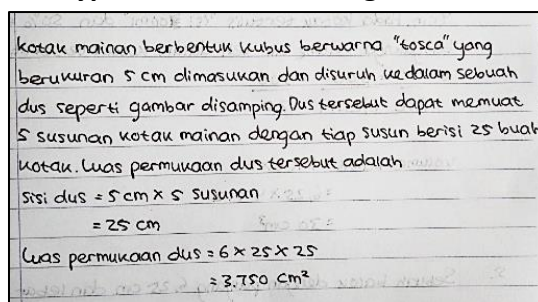 kotak mainan berbentuk kubus berwarna "tosca" yang
berukuran 5 cm dimasukan dan disuruh ke dalam sebuah
dus seperti gambar disamping. Dus tersebut dapat memuat
5 susunan kotak mainan dengan tiap susun berisi 25 buah
kotak. Luas permukaan dus tersebut adalah
Sisi dus = 5 cm × 5 susunan
= 25 cm
Luas permukaan dus = 6 × 25 × 25
= 3.750 cm²